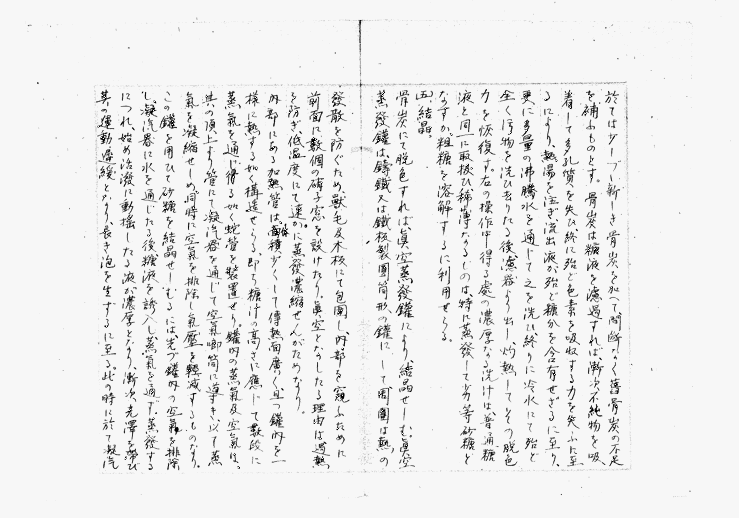 於ては少しづゝ新しき骨炭を加へて間断なく舊骨炭の不足
を補ふものとす。骨炭は糖液を濾過すれば漸次不純物を吸
着して多孔質を失ひ終に殆ど色素を吸収する力を失ふに至
るにより、熱湯を注ぎ流出液が殆ど糖分を含有せざるに至り、
更に多量の沸騰水を通じて之を洗ひ終りに冷水にて殆ど
全く汚物を洗ひ去りたる後濾器より出し灼熱してその脱色
力を恢復す。右の操作中得る処の濃厚なる洗汁は、普通糖
液と同に取扱ひ稀薄なるものは特に蒸發して劣等砂糖と
なすか、粗糖を溶解するに利用せらる。
五、結晶。
骨炭にて脱色すれば真空蒸發罐により、結晶せしむ、真空
蒸發罐は鋳鐵又は鐵板製圓筒形の罐にして周圍は熱の
發散を防ぐため獣毛及木板にて包圍し、内部を窺ふために
前面に数個の硝子窓を設けたり。真空となしたる理由は過熱
を防ぎ、低温度にて速かに蒸發濃縮せんがためなり。
内部にある加熱管は、体積少くして傳熱面廣く、且つ罐内を一
様に熱する如く構造せらる。即ち糖汁の高さに應じて数段に
蒸氣を通じ得る如く蛇管を装置せり。罐内の蒸氣及空氣は、
其の頂上より管にて凝汽器を通じて空氣喞筒に導き以て蒸
氣を凝縮せしめ、同時に空氣を排除し氣壓を軽減するものなり。
この罐を用ひて砂糖を結晶せしむるには先づ罐内の空氣を排除
し、凝汽器に水を通じたる後糖液を誘入し、蒸氣を通ず。蒸發する
につれ、始め活潑に動揺したる液が濃厚となり、漸次光澤を帯び
其の運動遅緩となり長き泡を生ずるに至る。此の時に於て凝汽